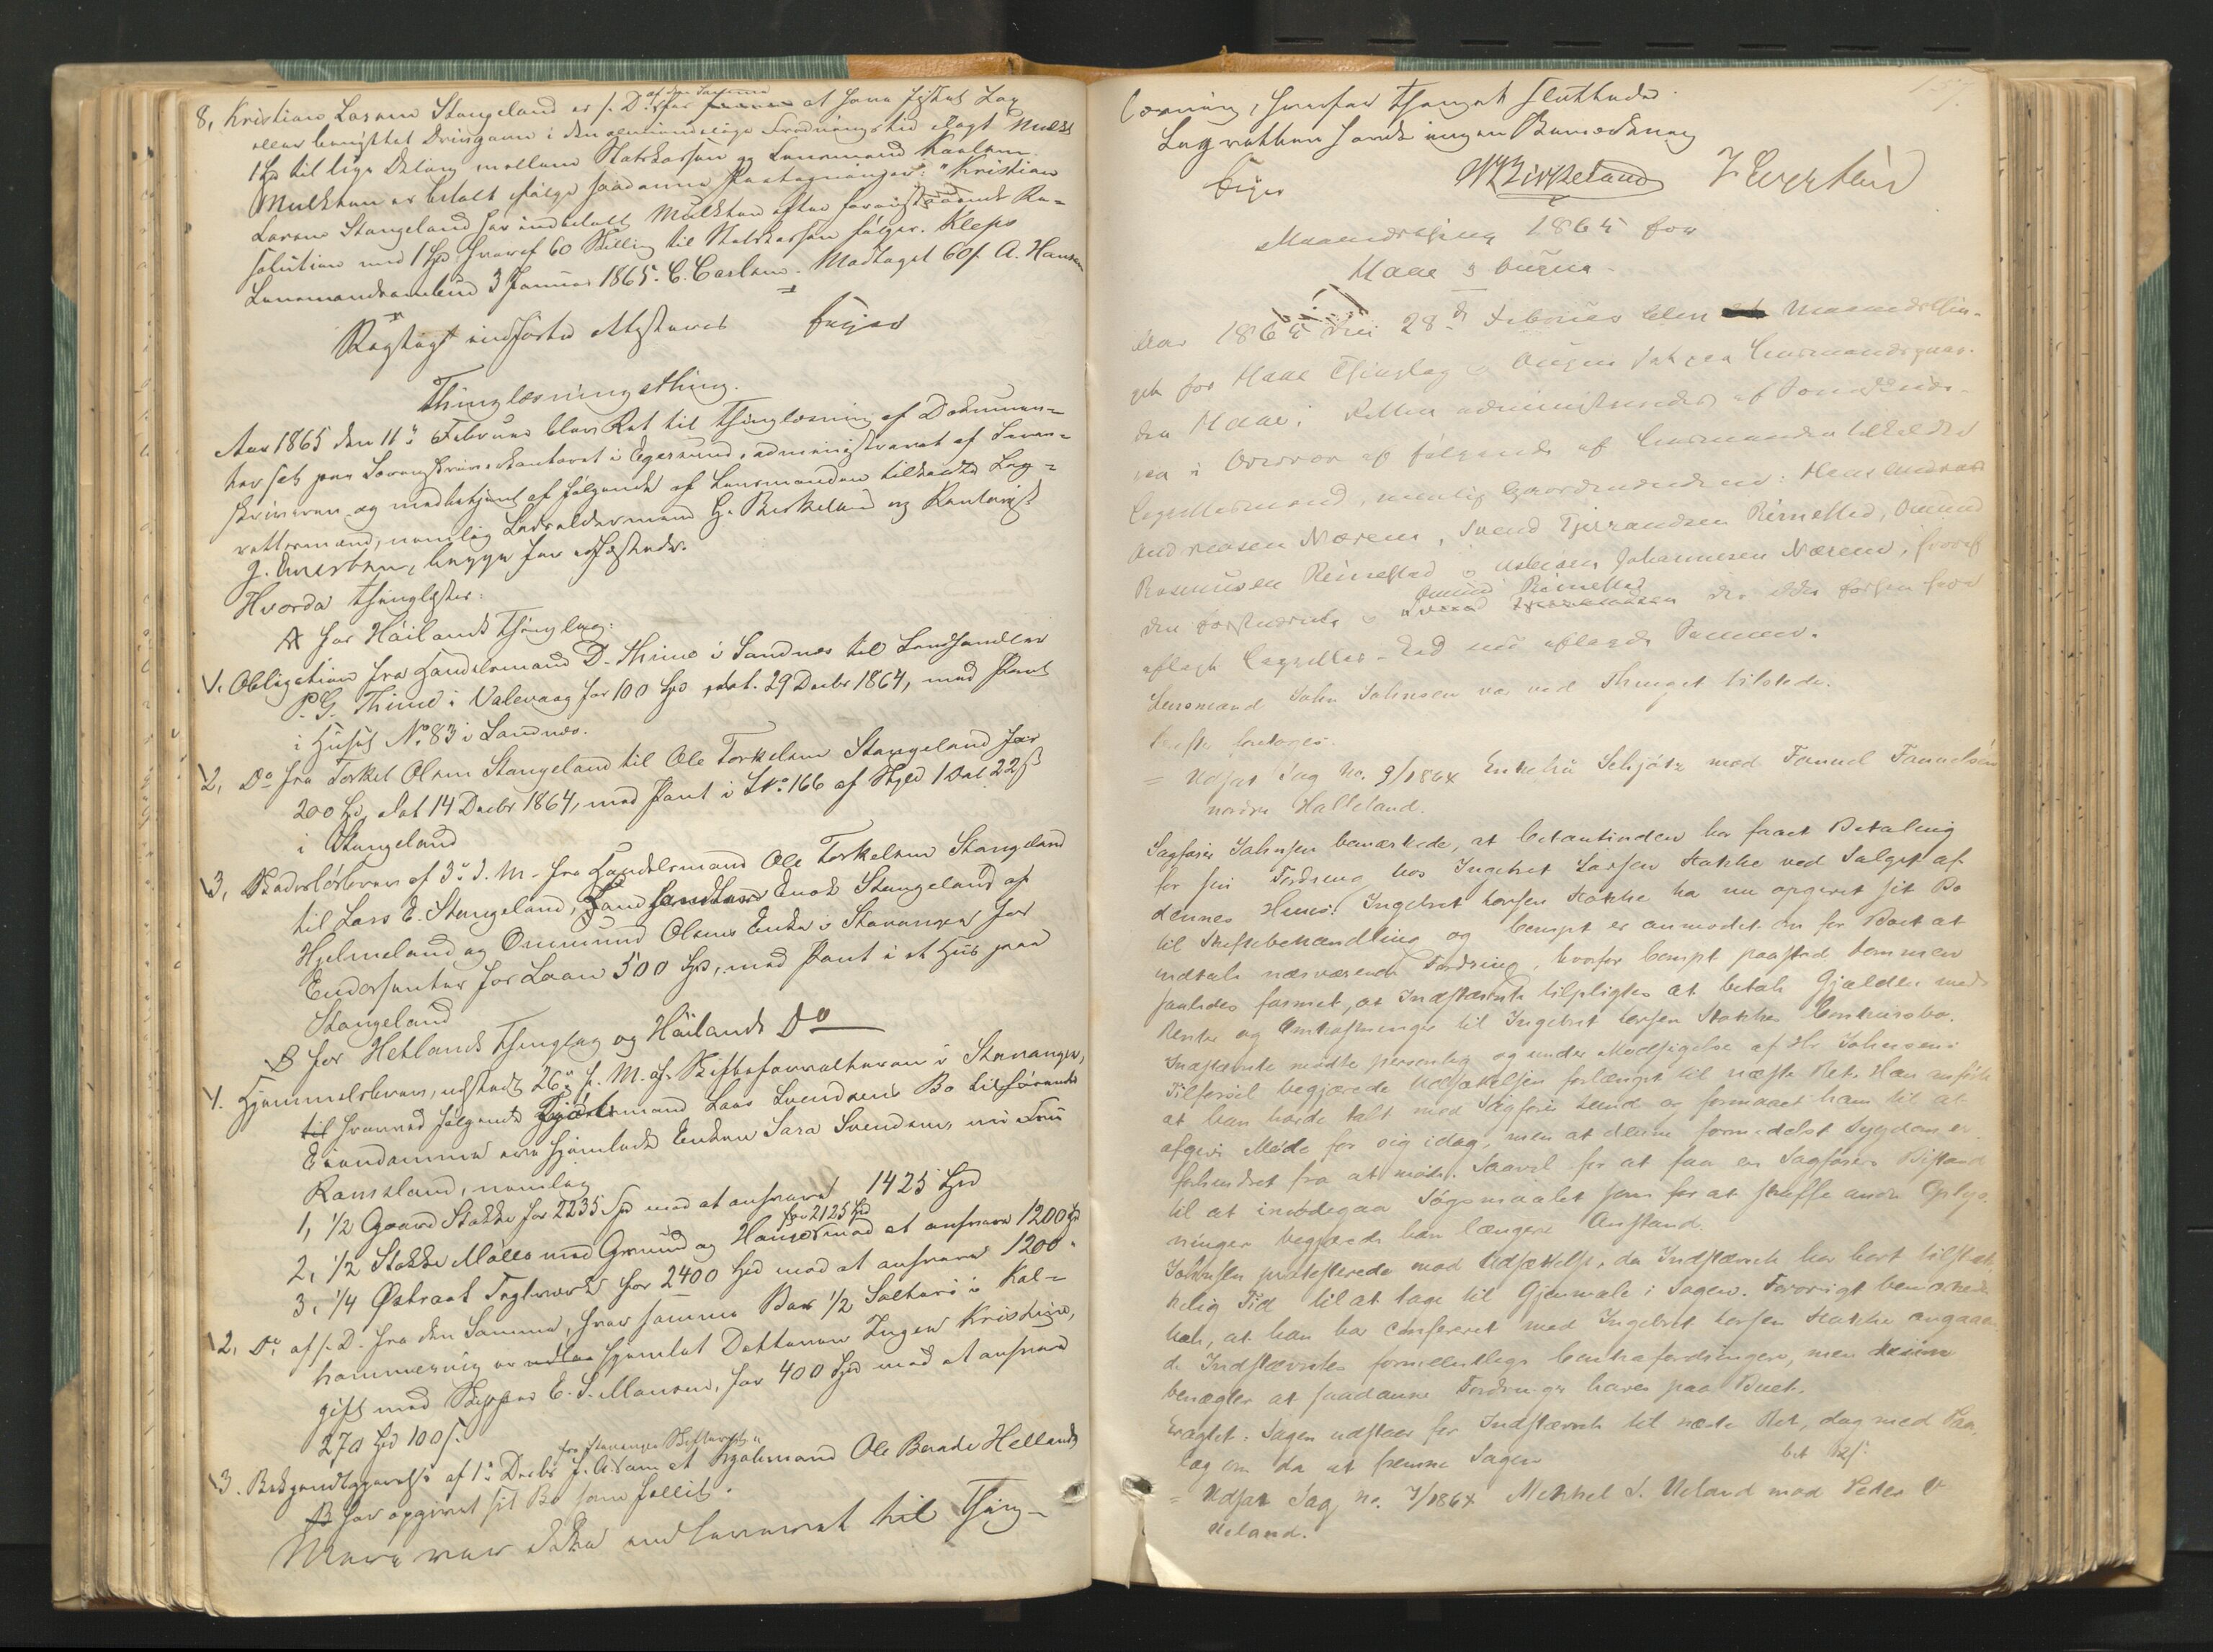 8, Kristian Larsen Stangeland er s. D. af den Samme at have fisket Lax
eller benyttet Driv i den almindelige Fredningstid ilagt Mulkt
1 Spd til lige Deling mellem Statskassen og Lensmand Karlsen.
Mulkten er betalt ifølge saadanne Paategninger: "Kristian
Larsen Stangeland har indbetalt Mulkten efter foranstaaende Re-
solution med 1 Spd hvoraf 60 Skilling til Statskassen følger. Klepp
Lensmandsombud 3 Januar 1865. C. Carlsen. Modtaget 60 s. A. Hansen
Rigtigt indførte attesteres
Thinglæsningsthing.
Aar 1865 den 11te Februar blev Ret til Thinglæsning af Dokumen-
ter sat paa Sorenskriverkontoret i Egersund, administreret af Soren-
skriveren og medbetjent af følgende af Lensmanden tilsagte Lag-
rettesmænd, nemlig G. Birkeland og Kontorist
J. Evertsen, begge før edfæstede.
Hvorda thinglæstes:
A for Høilands Thinglag:
1. Obligation fra Handelsmand D. Thime i Sandnes til Landhandler
P. G. Thime i Valevaag for 100 Spd, dat. 29 Decbr 1864, med Pant
i Huset No. 83 i Sandnes.
2, Do fra Torkel Olsen Stangeland til Ole Torkelsen Stangeland for
200 Spd, dat 14 Decbr 1864, med Pant i L No. 166 af Skyld 1 Dal. 22 s
i Stangeland
3, Skadesløsbrev af 3de d. M. fra Handelsmand Ole Torkelsen Stangeland
til Lars E. Stangeland, Enok Stangeland af
Hjelmeland og Ommund Olsens Enke i Stavanger for
Endossenter for Laan 500 Spd, med Pant i et Huus paa
Stangeland
B for Hetlands Thinglag og Høilands Do
1. Hjemmelsbrev, udstedt 26de f. M. af Skifteforvalteren i Stavanger,
til hvorved følgende Lars Svendsens Bo tilhørende
Eiendomme ere hjemlede Enken Sara Svendsen, nu Fru
Ramsland, nemlig
1, 1/2 Gaard Stokke for 2235 Spd mod at ansvare 1425 Spd
2, 1/2 Stokke Mølle med Grund og Huuse for 2125 Spd mod at ansvare 1200 Spd
3, 1/4 Østraat Teglverk for 2400 Spd mod at ansvare 1200 "
2, Do af s. D. fra den Samme, hvor samme Boes 1/2 Salteri i Kal-
hammervig er hjemlet Datteren Inger Kristine,
gift med Skipper E. S. Monsen, for 400 Spd mod at ansvare
270 Spd 100 s.
3. Bekjendtgjørelse af 1ste Decbr f. A. fra Stavanger Skifteret om at Ole Berntsen Hetland
har opgivet sit Bo som fallit.
Mere var ikke indleveret til Thing-
læsning, hvorfor Thinget sluttedes.
Lagretten havde ingen Bemærkning
Feyer
G Birkeland
J Evertsen
Maanedsthing 1865 for
Haae & Augne.
Aar 1865 den 28de Februar blev Maanedsthin-
get for Haae Thinglag & Augne sat paa Lensmandsgaar-
den Haae. Retten administreredes af Sorenskrive-
ren i Overvær af følgende af Lensmanden tilsagte
Lagrettesmænd, nemlig Gaardmændene: Hans Andreas
Andreasen Nærem, Svend Tjerandsen Rimestad, Omund
Rasmusen Rimestad & Asbjørn Johannesen Nærem, hvoraf
den førstnævnte & Omund Rimestad, der ikke forhen have
aflagt Lagrettes-Eed nu aflagde Samme.
Lensmand John Johnsen var ved Thinget tilstede.
Derefter foretoges.
= Udsat Sag No. 9/1864 Enkefru Schjøtz mod Tønnes Tønnesen
nordre Halleland.
Sagfører Johnsen bemærkede, at Citantinden har faaet Betaling
for sin Fordring hos Ingebret Larsen Stokke ved Salget af
dennes Huus. Ingebret Larsen Stokke har nu opgivet sit Bo
til Skiftebehandling og Compt er anmodet om for Boet at
indtale nærværende Fordring, hvorfor Compt paastod Dommen
saaledes formet, at Indstævnte tilpligtes at betale Gjælden med
Rente og Omkostninger til Ingebret Larsen Stokkes Konkursbo.
Indstævnte mødte personlig og under Modsigelse af Hr. Johnsens
Tilførsel begjærede Udsættelsen forlænget til næste Ret. Han anførte
at han havde talt med Sagfører Lund og formaaet ham til at
afgive Møde for sig idag, men at denne formedelst Sygdom er
forhindret fra at møde. Saavel for at faa en Sagførers Bistand
til at imødegaa Søgsmaalet som for at skaffe andre Oplys-
ninger begjærede han længere Anstand.
Johnsen protesterede mod Udsættelse, da Indstævnte har havt tilstræk-
kelig Tid til at tage til Gjenmæle i Sagen. Forøvrigt bemærkede
han, at han har confereret med Ingebret Larsen Stokke angaaen-
de Indstævntes formeentlige Contrafordringer, men denne
benægter at saadanne Fordringer haves paa Boet.
Eragtet. Sagen udstaaer for Indstævnte til næste Ret, dog med Fore-
læg om da at fremme Sagen
bet 12 s.
= Udsat Sag No. 7/1864 Mikkel S. Ueland mod Peder O
Ueland.